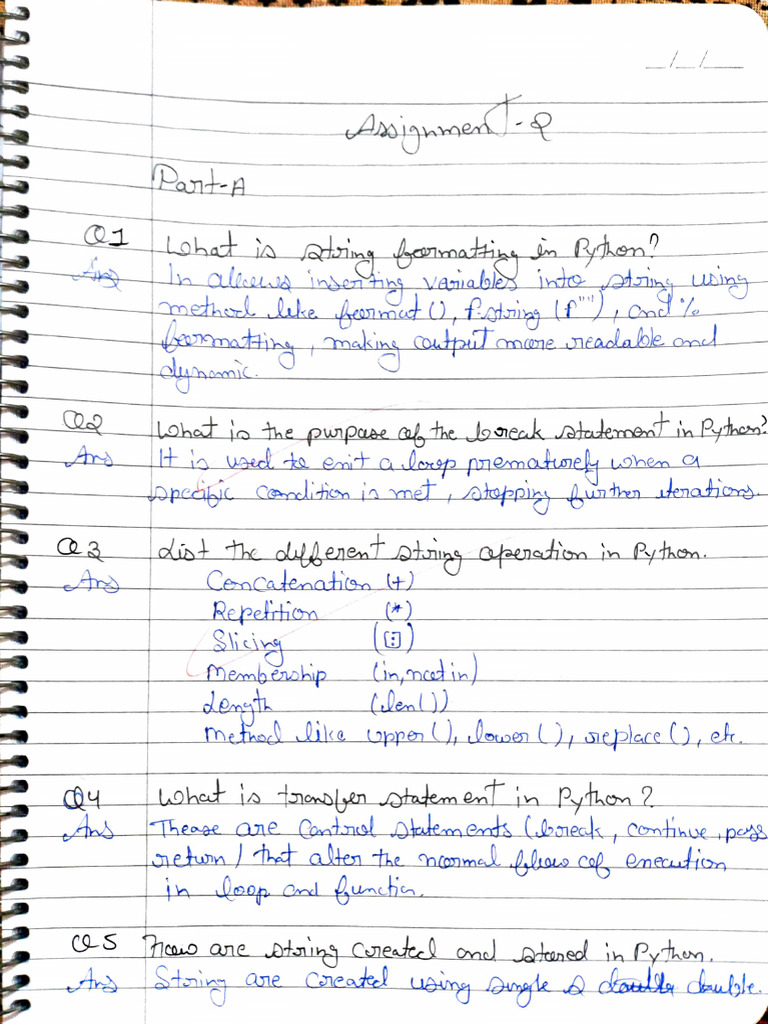 __/__/__
Assignment-2
Part-A
Q1 What is string formatting in Python?
Ans In allows inserting variables into string using
method like format(), f-string (f""), and %
formatting, making output more readable and
dynamic.
Q2 What is the purpose of the break statement in Python?
Ans It is used to exit a loop prematurely when a
specific condition is met, stopping further iterations.
Q3 List the different string operation in Python.
Ans Concatenation (+)
Repetition (*)
Slicing ([:])
Membership (in, not in)
Length (len())
Method like upper(), lower(), replace(), etc.
Q4 What is transfer statement in Python?
Ans Thease are control statements (break, continue, pass
return) that alter the normal flow of execution
in loop and function.
Q5 How are string created and stored in Python.
Ans String are created using single & double.